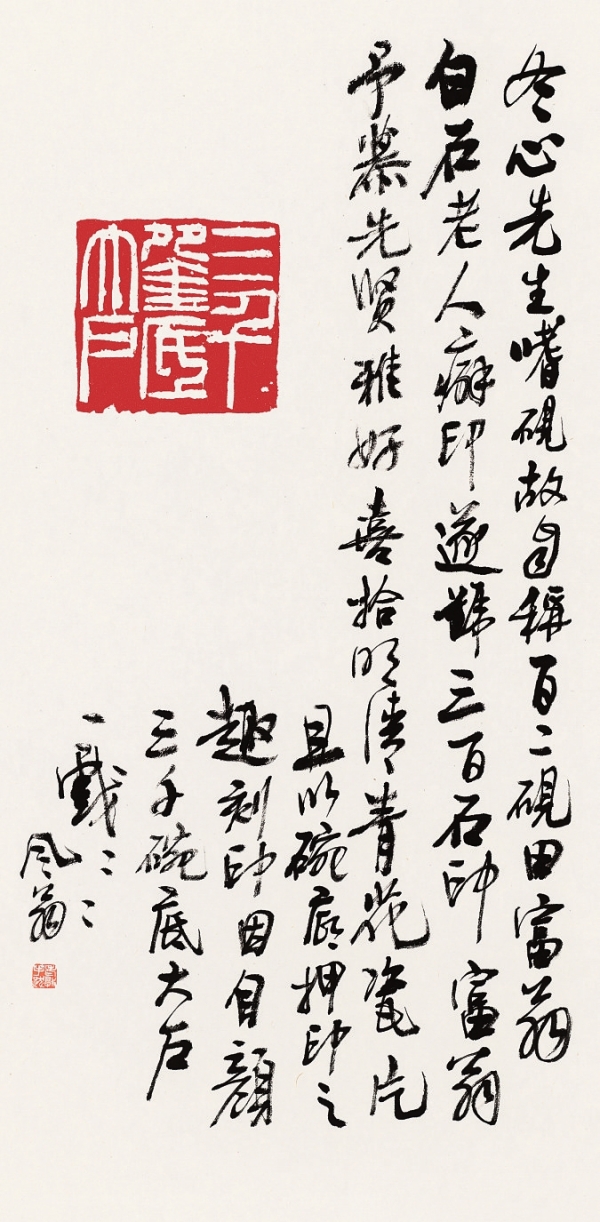 冬心先生嗜硯故自稱百二硯田富翁
白石老人癖印遂號三百石印富翁
予慕先賢雅好喜拾明清青花瓷片
且以碗底押印之
趣刻印因自顏
三千碗底大户
一戲〻〻
风翁
三千
底
大户